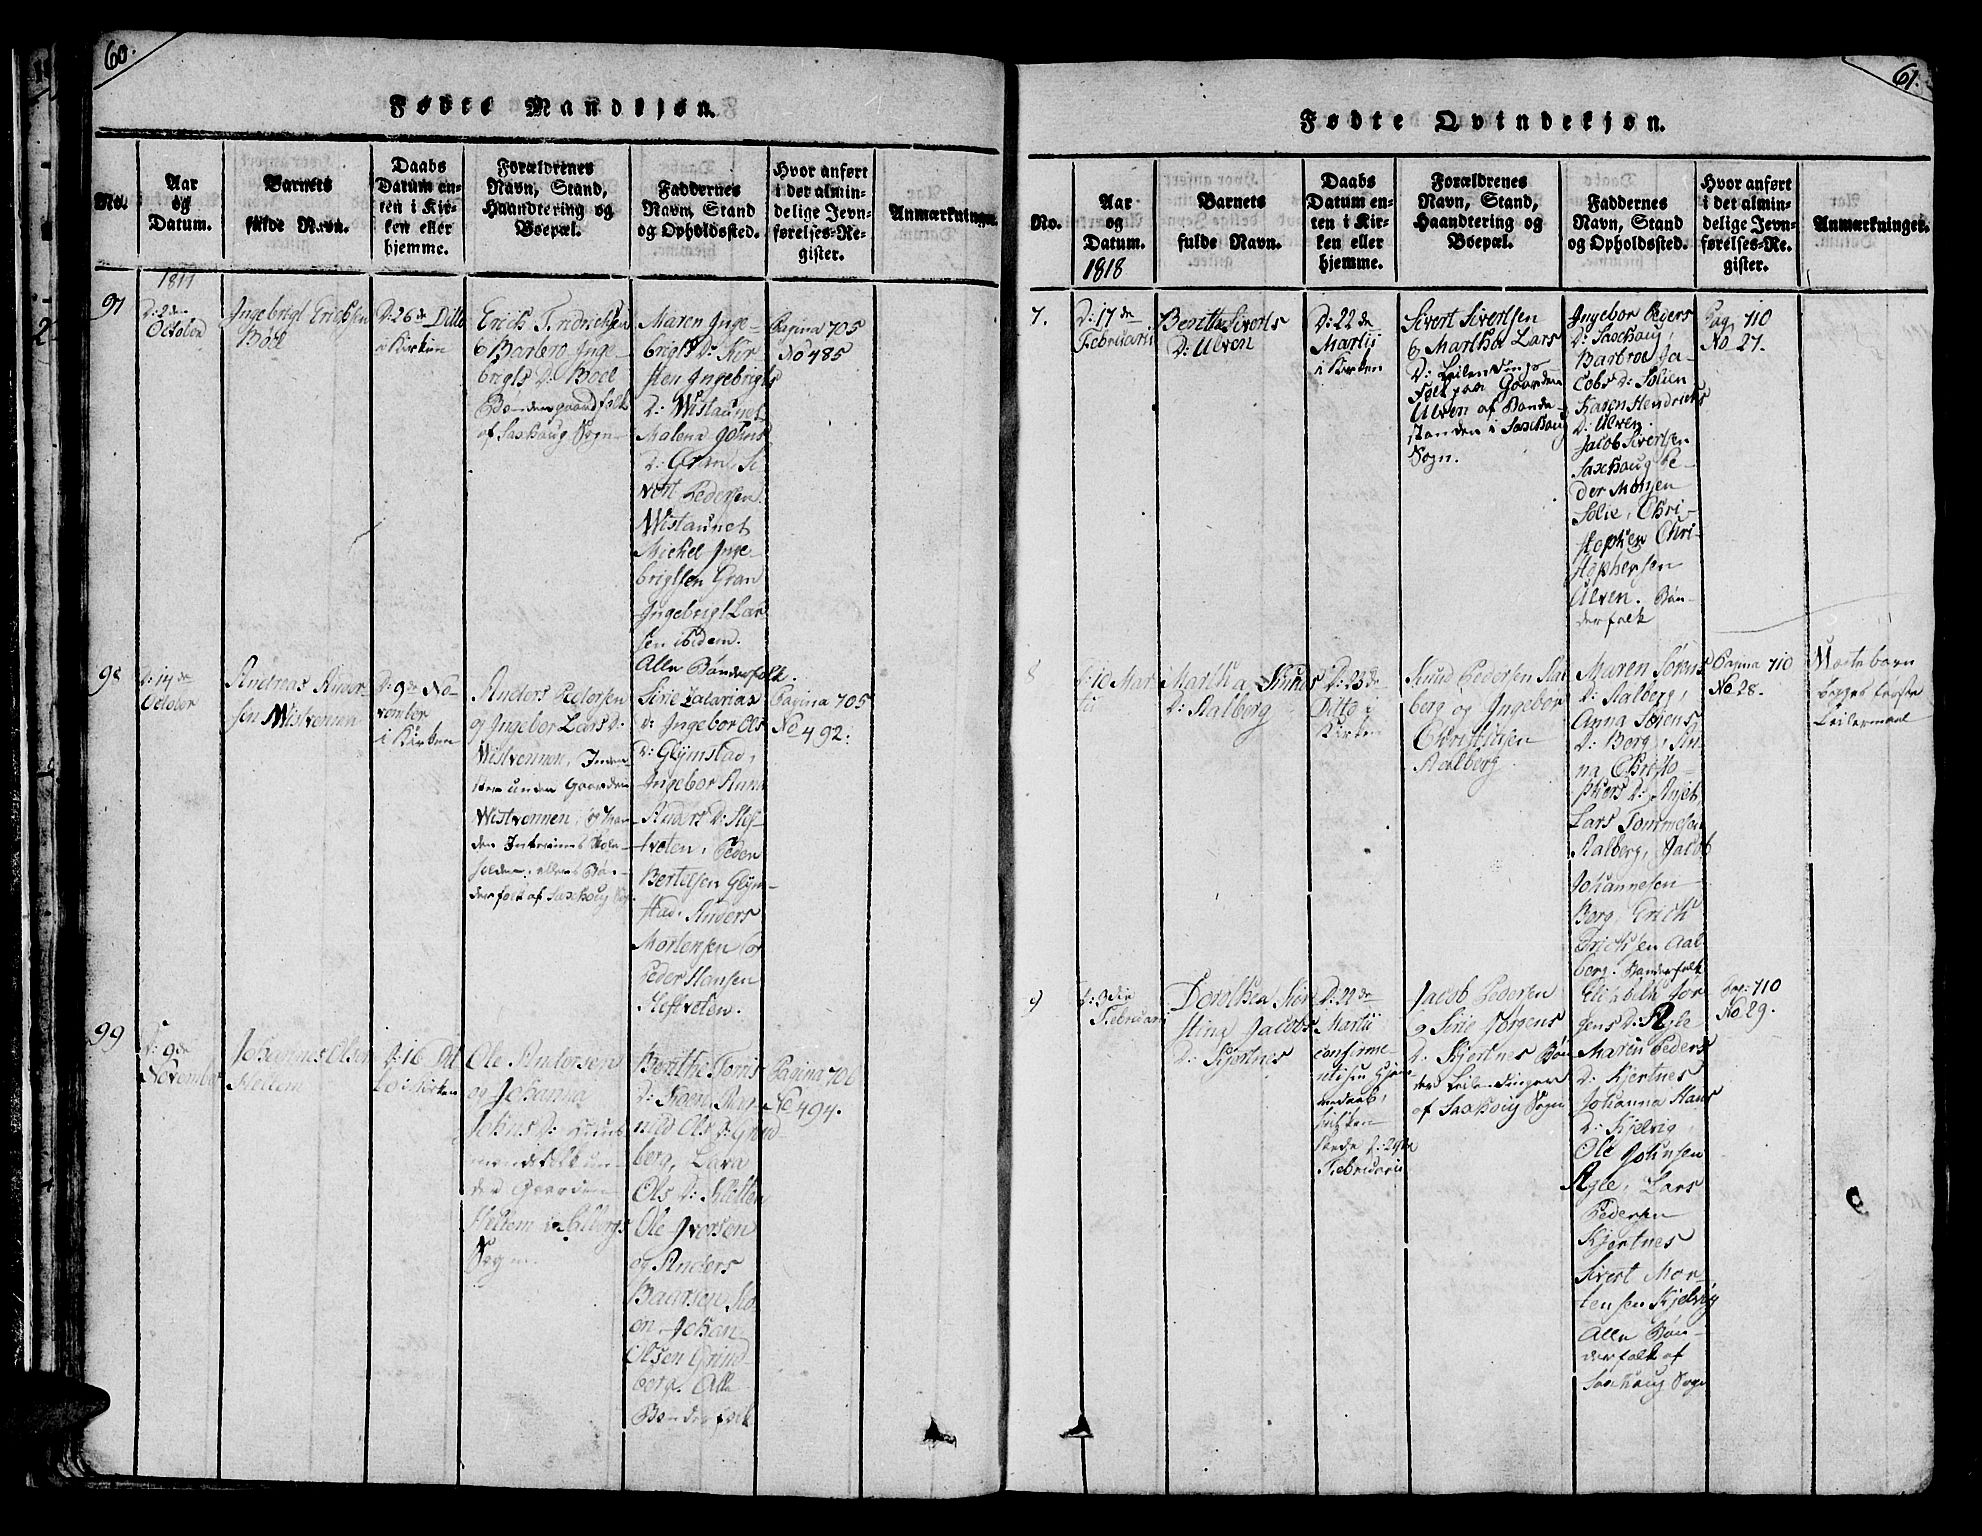 60.
Fødte Mandkjøn.
No.
Aar
og
Datum.
Barnets
fulde Navn.
Daabs
Datum en-
ten i Kir-
ken eller
hjemme.
Forældrenes
Navn, Stand,
Haandtering og
Boepæl.
Faddernes
Navn, Stand
og Opholdssted.
Hvor anført
i det almin-
delige Jevn-
førelses-Re-
gister.
Anmærkninger.
1817
97
D: 2de
October
Ingebrigt Erichsen
Böel
D: 26de Ditto
i Kirken
Erich Fridrichsen
& Barbro Inge-
brigts D: Böel
Böndergaardfolk
af Saxhaug Sogn
Maren Inge-
brigts D: Kir-
sten Ingebrigts
D: Wistaunet
Malena Johns
D: Gran, Si
vert Pedersen
Wistaunet
Michel Inge-
brigtsen Gran
Ingebrigt Lar
sen ibidem.
Alle Bönderfolk.
Pagina 705
No 485
98
D: 14de
October
Andreas Ander-
sen Wistvennen
D: 9de No-
vember
i Kirken
Anders Pedersen
og Ingebor Lars D:
Wistvennen, Inder-
ster under Gaarden
Wistvennen, og Man
den Interims Skole-
holder, ellers Bön-
derfolk af Saxhaug Sogn
Sirie Zacarias
D: Ingebor Ols
D: Glÿmstad,
Ingebor Anna
Anders D: Hef-
tveten, Peder
Bertelsen Glÿm-
stad, Anders
Mortensen
Peder Hansen
Heftveten.
Pagina 705
No 492:
99
D: 9de
November
Johannes Olsen
Hellem
D: 16 Dit
to i Kirken
Ole Andersen
og Johanna
Johns D: Huus-
mandsfolk un-
der Gaarden
Hellem i Salbergs
Sogn.
Berithe Tomis
D: Koen, Rag
nild Ols D: Grind-
berg, Lava
Ols D: Kletten
Ole Iversen
og Anders
Baarsen Ko-
en, Johan
Olsen Grind
berg. Alle
Bönderfolk
Pagina 706
No 494.
61.
Fødte Qvindekjøn.
No.
Aar
og
Datum.
Barnets
fulde Navn.
Daabs
Datum en-
ten i Kir-
ken eller
hjemme.
Forældrenes
Navn, Stand,
Haandtering og
Boepæl.
Faddernes
Navn, Stand
og Opholdssted.
Hvor anført
i det almin-
delige Jevn-
førelses-Re-
gister.
Anmærkninger.
1818
7.
D: 17de
Februarii
Berith Siverts
D: Ulven
D: 22de
Martii
i Kirken
Sivert Sivertsen
& Martha Lars
D: Leilendings
Folk paa Gaarden
Ulven af Bonde-
standen i Saxhaug
Sogn.
Ingebor Peders
D: Saxhaug,
Barbroe Ja-
cobs D: Solien
Karen Hendrichs
D: Ulven.
Jacob Sivertsen
Saxhaug, Pe-
der Monsen
Solie, Chri-
stopher Chri-
stophersen
Ulven. Bön-
derfolk
Pag. 710
No 27.
8
D: 10 Mar
tii
Martha Knuds
D: Aalberg
D: 23de
Ditto i
Kirken
Knud Pedersen Aal
berg og Ingebor
Christofsen
Aalberg.
Maren Sörens
D: Aalberg,
Anna Sörens
D: Borg, An-
na Christo-
phers D:
Lars Tommesen
Aalberg, Jacob
Johannesen
Borg, Erich
Erichsen Aal
berg. Bønderfolk
Pagina 710
No. 28.
Uægte barn
begges første
Leiermaal
9
D: 3die
Februarii
Dorothea Kir
stina Jacobs
D: Kjertnes
D: 22de
Martii
confirme-
res en Hjem-
medaab,
hvilken
skede D: 29de
Februarii
Jacob Pedersen
og Sirie Jörgens
D: Kjertnes Bön
der Leilendinger
af Saxhaug Sogn
Elisabeth Jör
gens D: Ayle
Maren Peders
D: Kjertnes
Johanna Hans
D: Kjelvig,
Ole Johnsen
Ayle, Lars
Pedersen
Kjertnes
Sivert Mor-
tensen Kjelvig
Alle Bön-
derfolk af
Saxhaug Sogn
Pag: 710
No. 29.